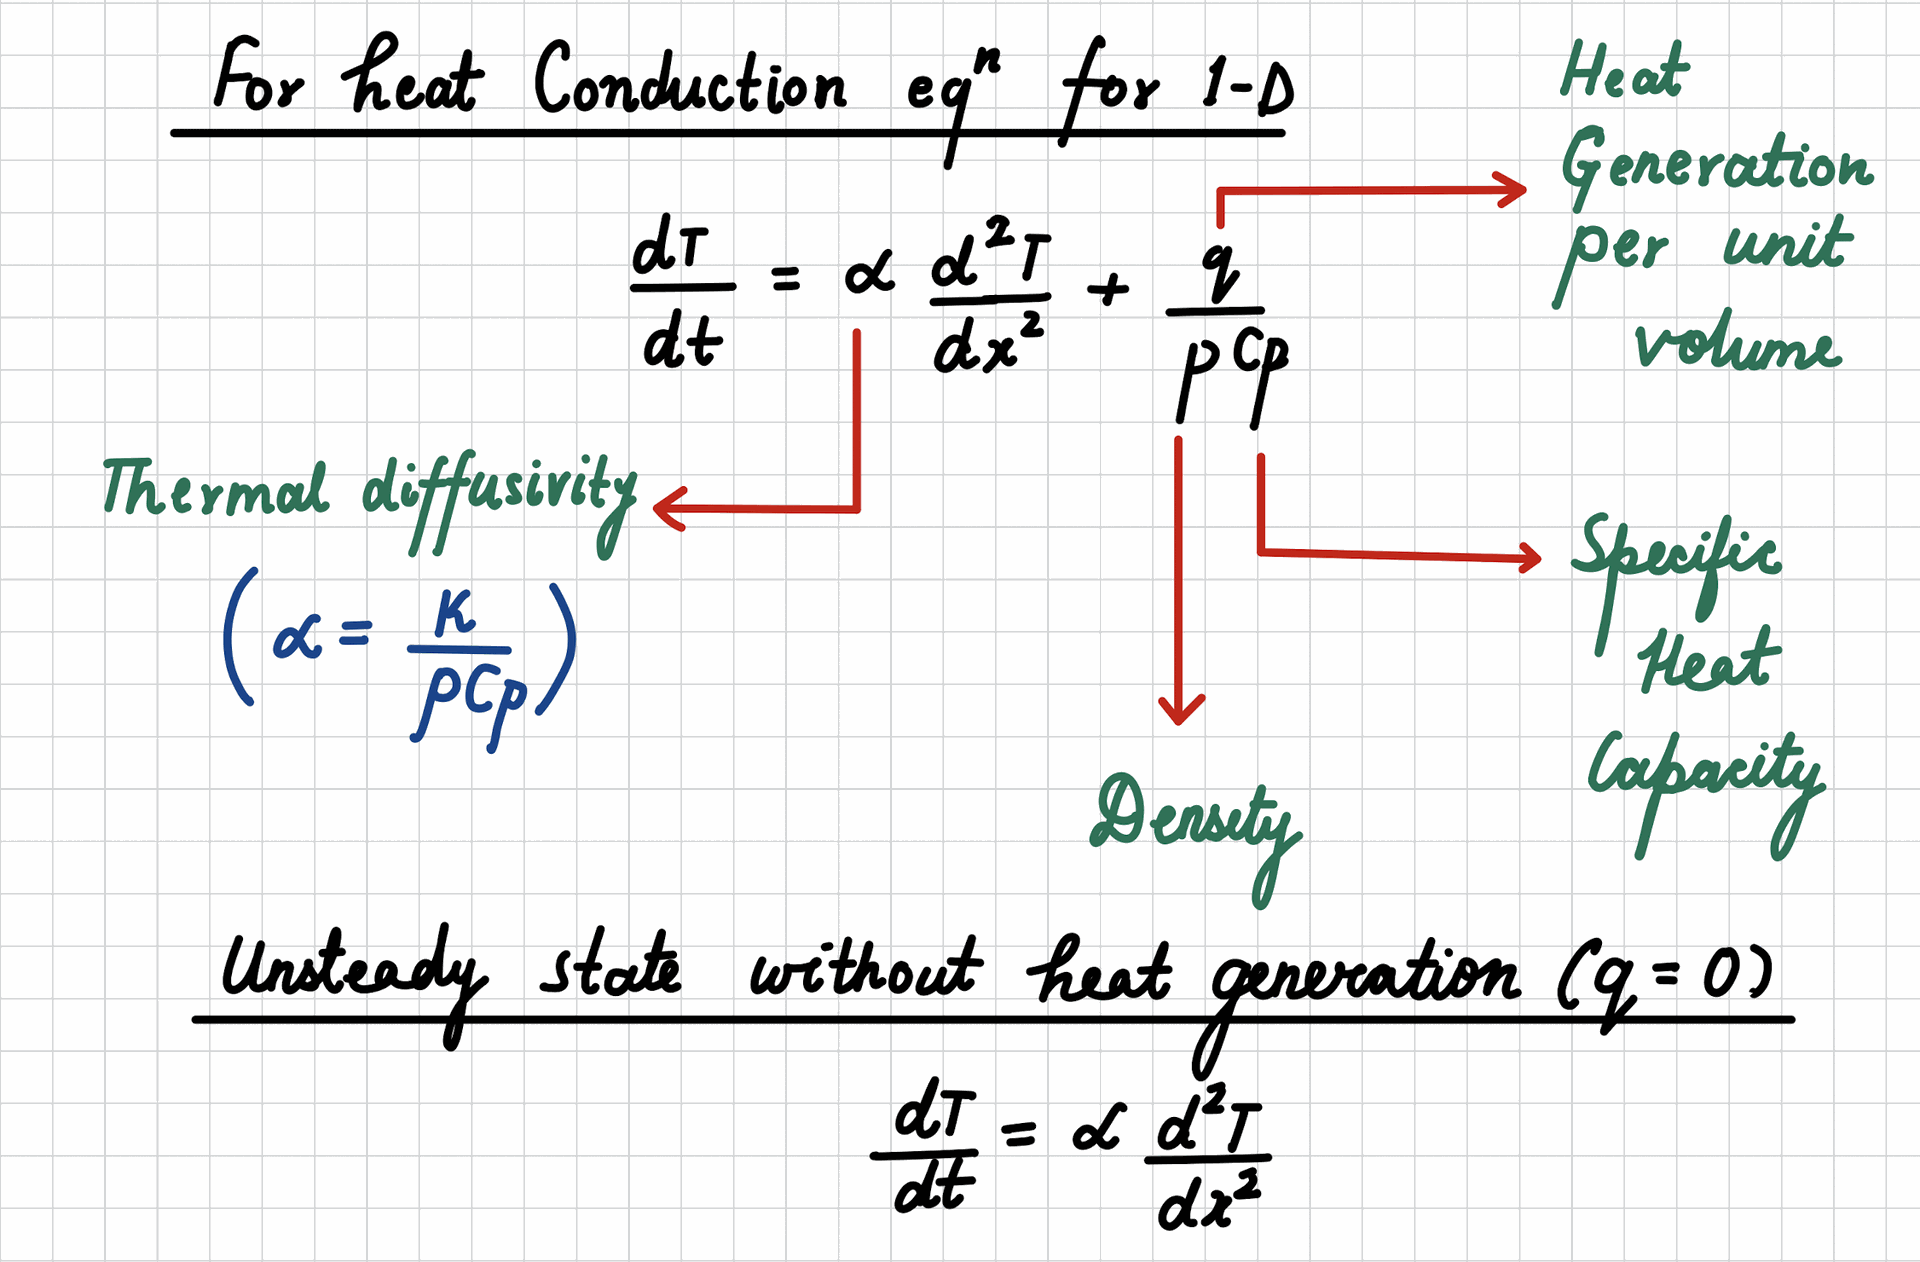 For heat Conduction eqⁿ for 1-D
dT/dt = α d²T/dx² + q/ρCp
Heat
Generation
per unit
volume
Thermal diffusivity
(α = K/ρCp)
Specific
Heat
Capacity
Density
Unsteady state without heat generation (q = 0)
dT/dt = α d²T/dx²